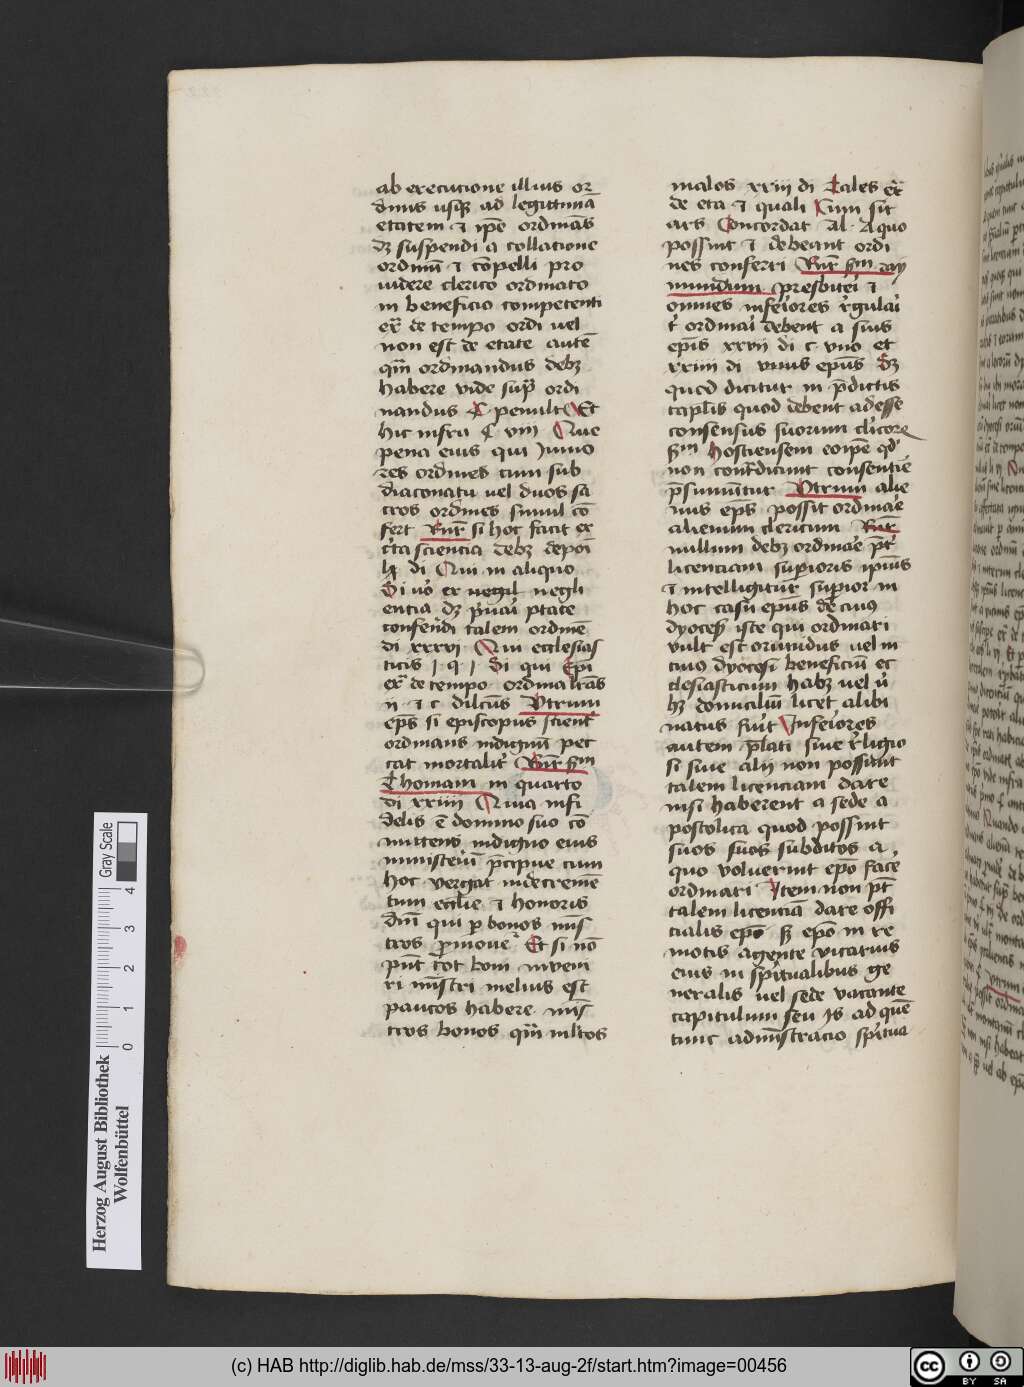 ab execucione illius or
dinis usqȝ ad legittimā
etatem ⁊ ip̄e ordinās
dȝ suspendi a collacione
ordinū ⁊ cōpelli pro
uidere clerico ordinato
in beneficio competenti
ex̄ de tempo ordi uel
non est de etate autē
qm̄ ordinandus debȝ
habere vide sup̄ ordi
nandus ¶ penult Et
hic infra ¶ viij Que
pena eius qui Juniio
res ordines cum sub
diaconatu uel duos sa
cros ordines simul cō
fert Rn̄r si hoc facit ex
c̄ta sciencia debȝ depoī
lx di Qui in aliquo
Si uo ex negil negli
entia dȝ p̄uaī ptate
conferēdi talem ordinē
di xxxvj Qui ecclesias
ticis j q j Si qui Ep̄i
ex̄ de tempo ordina lr̄ās
n ⁊ c dilc̄us Vtrum
ep̄s si episcopus scient̄
ordinans indignū pec
cat mortalit̄ Rn̄r s̄m
Thomam in quarto
di xxiiij Quia infi
delis ē domino suo cō
mittens indigno eius
ministeriū p̄cipue cum
hoc vergat in decremē
tum eccl̄ie ⁊ honoris
diu̅i qui p bonos mīs
tros p̄mouē Et si nō
pn̄t tot boni inveni
ri mīstri melius est
paucos habere mīs
tros bonos qm̄ ml̄tos
malos xxiij di Tales ex̄
de eta ⁊ quali Cum sit
ars Concordat Al A quo
possint ⁊ debeant ordi
nes conferri Rn̄r s̄m ray
mundum presbitei ⁊
omnes inferiores r̄gulai
t̄ ordinai debent a suis
ep̄is xxvij di c vno et
xxiiij di vnus ep̄us Sȝ
quod dicitur in p̄dictis
capl̄is quod debent adesse
consensus suorum clicore
s̄m hostiensem eoip̄e qd̄
non cont̄dicunt consentiē
p̄sumūtur Vtrum alie
nus ep̄s possit ordinaē
alienum clericum Rn̄r
nullum debȝ ordinaē p̄t
licenciam sup̄ioris ipius
⁊ intelligitur sup̄ior in
hoc casu ep̄us de cuiꝯ
dyoces̄ iste qui ordinari
vult est oriūdus uel in
cuiꝯ dyocesi beneficiū ec
clesiasticum habȝ uel ū
hȝ domiciliū licet alibi
natus fuit Inferiores
autem p̄lati siue r̄ligio
si siue alij non possunt
talem licenciam dare
nisi haberent a sede a
postolica quod possint
suos suos subditos a
quo voluerint ep̄o facē
ordinari Item non pt̄
talem licenciā dare offi
cialis ep̄o sȝ ep̄o in re
motis agente vicarius
eius in sp̄itualibus ge
neralis uel sede vacante
capitulum seu is ad quē
tunc administracio sp̄itua
Gray Scale
4
3
2
1
0
Herzog August Bibliothek
Wolfenbüttel
(c) HAB http://diglib.hab.de/mss/33-13-aug-2f/start.htm?image=00456
cc
BY SA